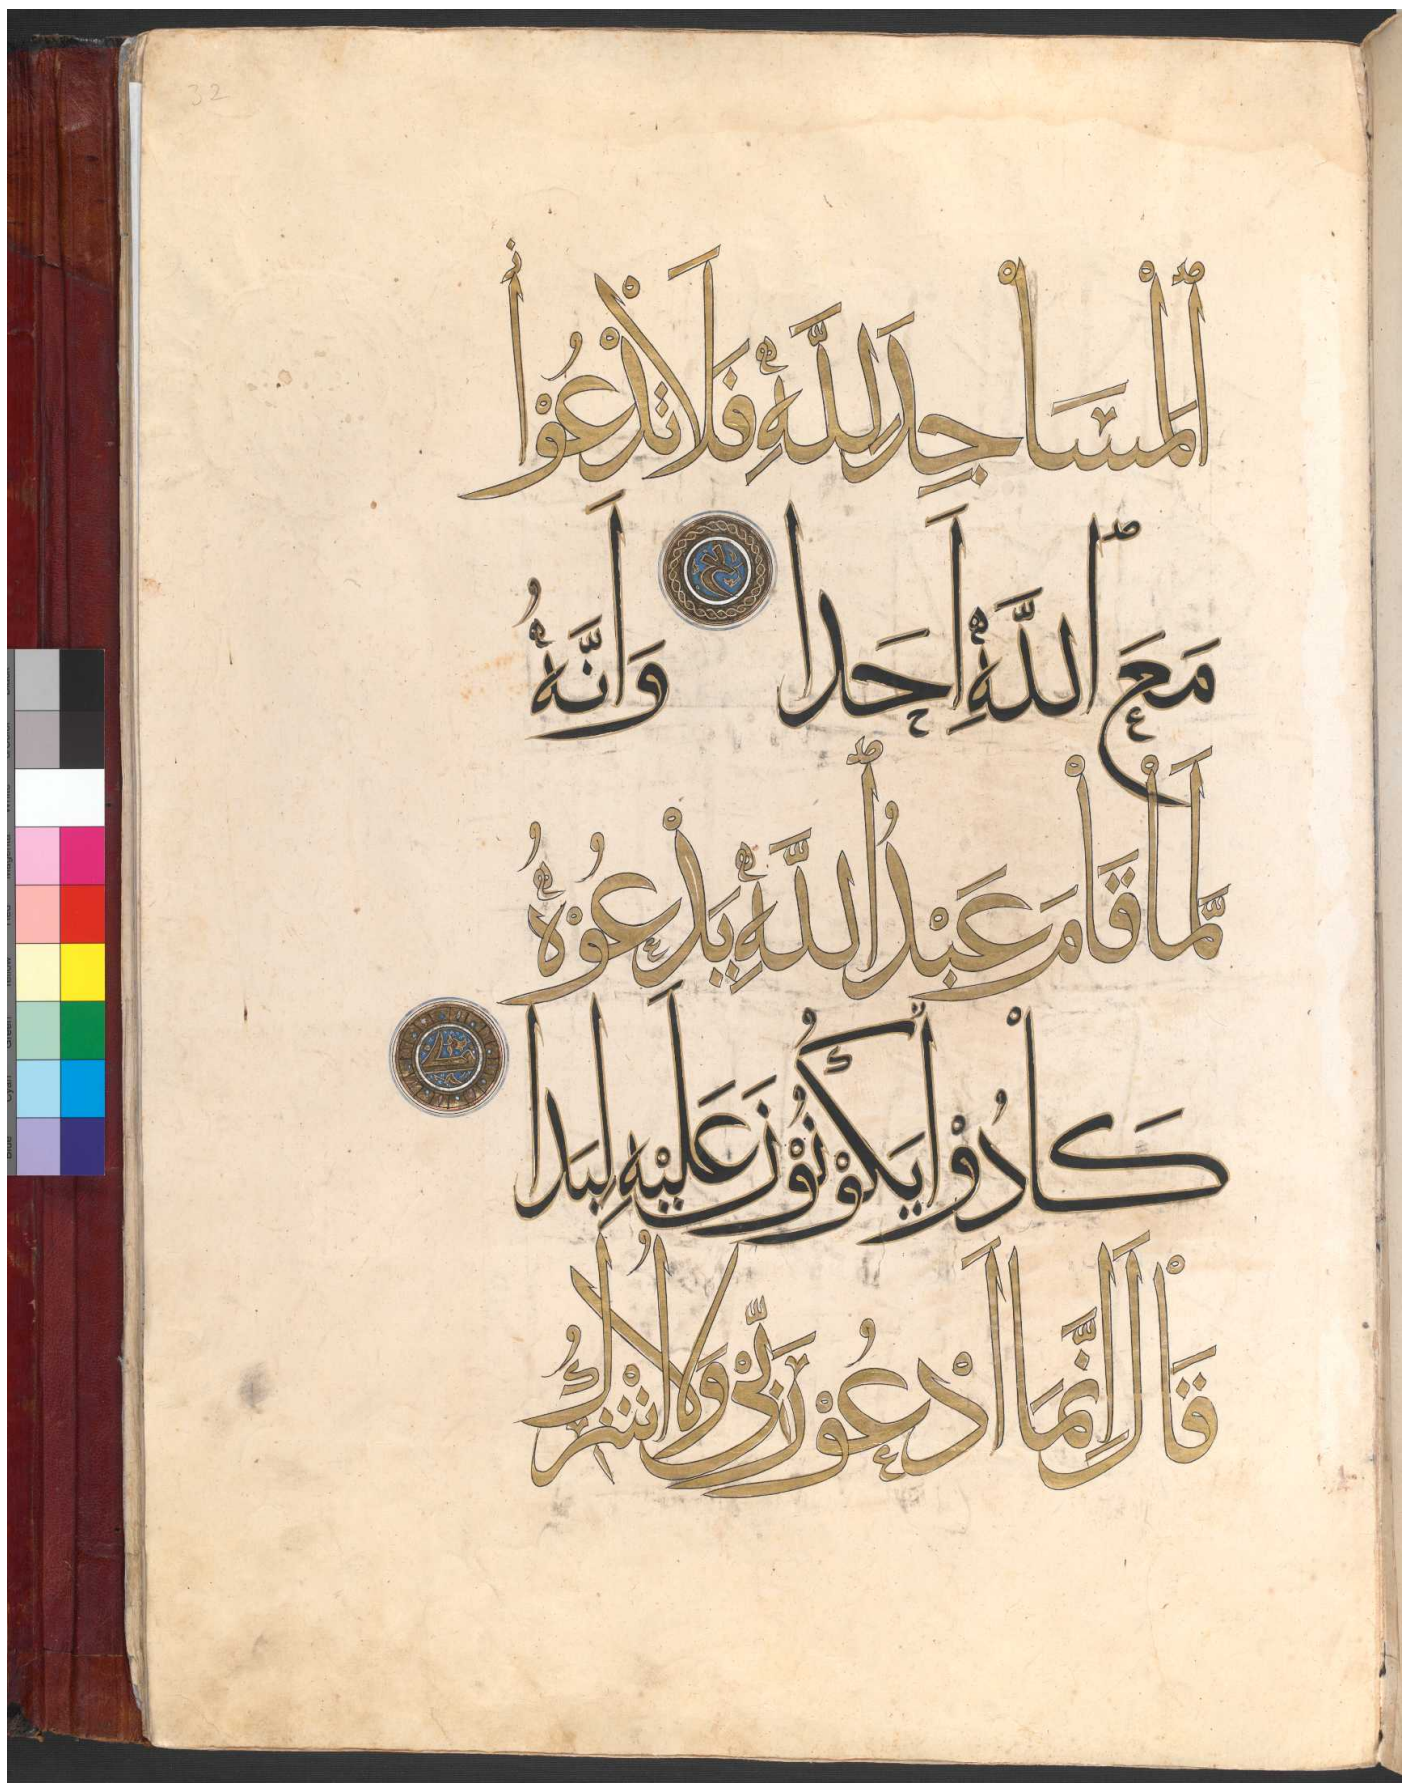 32
ٱلْمَسَاْجِدَ لِلَّهِ فَلَا تَدْعُوْا
مَعَ ٱللَّهِ أَحَدا وَأَنَّهُ
لَمَّاْ قَاْمَ عَبْدُ ٱللَّهِ يَدْعُوْهُ
كَاْدُوْا يَكُوْنُوْنَ عَلَيْهِ لِبَدا
قَاْلَ إِنَّمَا أَدْعُوْ رَبِّيْ وَلَا أُشْرِكُ